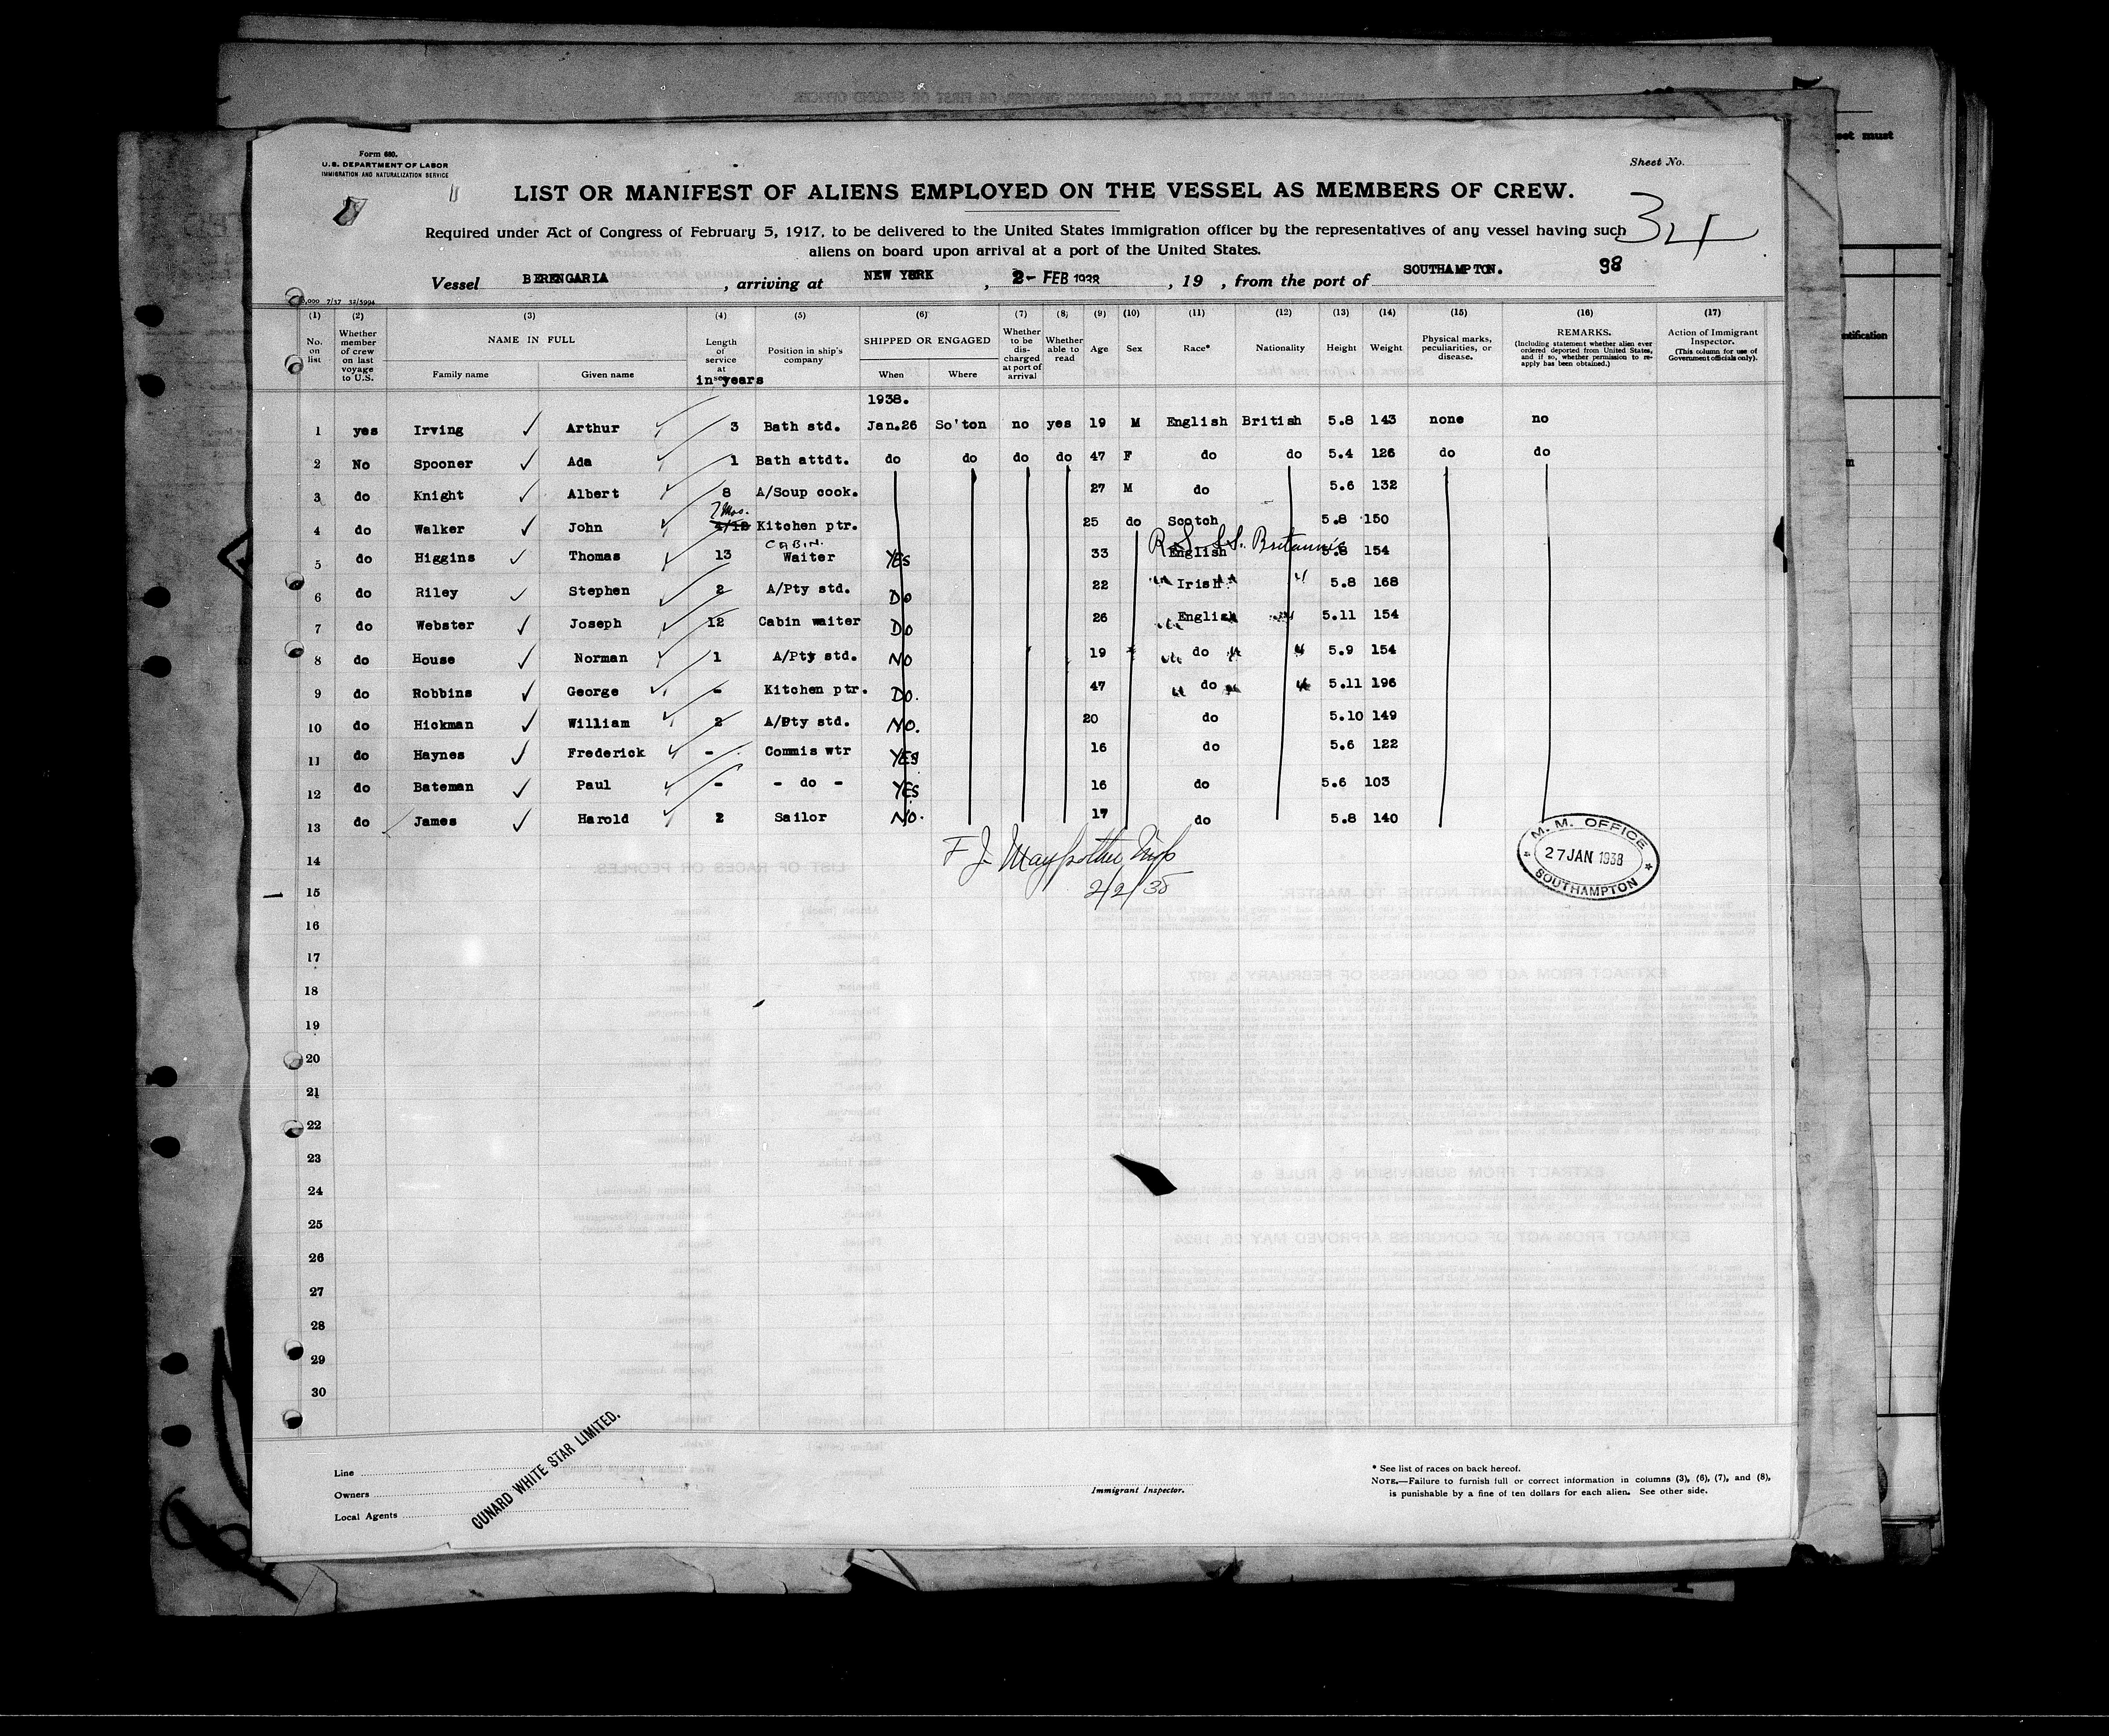 Form 680.
U.S. DEPARTMENT OF LABOR
IMMIGRATION AND NATURALIZATION SERVICE
Sheet No.
LIST OR MANIFEST OF ALIENS EMPLOYED ON THE VESSEL AS MEMBERS OF CREW.
34
Required under Act of Congress of February 5, 1917, to be delivered to the United States Immigration officer by the representatives of any vessel having such
aliens on board upon arrival at a port of the United States.
98
Vessel BERENGARIA, arriving at NEW YORK, 2- FEB 1938, 19 , from the port of SOUTHAMPTON.
(1) (2) (3) (4) (5) (6) (7) (8) (9) (10) (11) (12) (13) (14) (15) (16) (17)
No. on list
Whether member of crew on last voyage to U.S.
NAME IN FULL
Family name Given name
Length of service at sea
in years
Position in ship's company
SHIPPED OR ENGAGED
When Where
Whether to be discharged at port of arrival
Whether able to read
Age Sex Race* Nationality Height Weight
Physical marks, peculiarities, or disease.
REMARKS.
(Including statement whether alien ever ordered deported from United States, and if so, whether permission to re-apply has been obtained.)
Action of Immigrant Inspector.
(This column for use of Government officials only).
1938.
1 yes Irving Arthur 3 Bath std. Jan.26 So'ton no yes 19 M English British 5.8 143 none no
2 No Spooner Ada 1 Bath attdt. do do do do 47 F do do 5.4 126 do do
3 do Knight Albert 8 A/Soup cook. 27 M do 5.6 132
4 do Walker John 7 Mos. Kitchen ptr. 25 do Scotch 5.8 150
R.S. SS. Britannic
5 do Higgins Thomas 13 CABIN. Waiter YES 33 English 5.8 154
6 do Riley Stephen 2 A/Pty std. DO 22 Irish 5.8 168
7 do Webster Joseph 12 Cabin waiter DO 26 English 5.11 154
8 do House Norman 1 A/Pty std. NO 19 do 5.9 154
9 do Robbins George - Kitchen ptr. DO. 47 do 5.11 196
10 do Hickman William 2 A/Pty std. NO. 20 do 5.10 149
11 do Haynes Frederick - Commis wtr YES 16 do 5.6 122
12 do Bateman Paul - - do - YES 16 do 5.6 103
13 do James Harold 2 Sailor NO. 17 do 5.8 140
14
F J
2/2/38
M. M. OFFICE
27 JAN 1938
SOUTHAMPTON
15
16
17
18
19
20
21
22
23
24
25
26
27
28
29
30
Line
Owners
Local Agents
CUNARD WHITE STAR LIMITED.
Immigrant Inspector.
* See list of races on back hereof.
NOTE.—Failure to furnish full or correct information in columns (3), (6), (7), and (8),
is punishable by a fine of ten dollars for each alien. See other side.